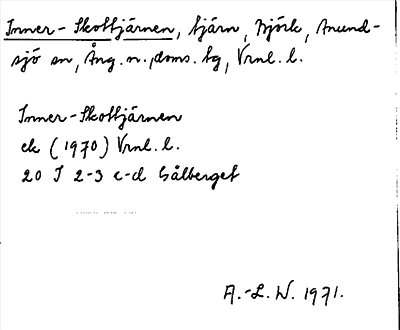 Inner-Skottjärnen, tjärn, Björk, Anund-
sjö sn, Ång. n. doms. tg, Vrnl. l.
Inner-Skottjärnen
ek (1970) Vrnl. l.
20 I 2-3 c-d Gålberget
A.-L. W. 1971.